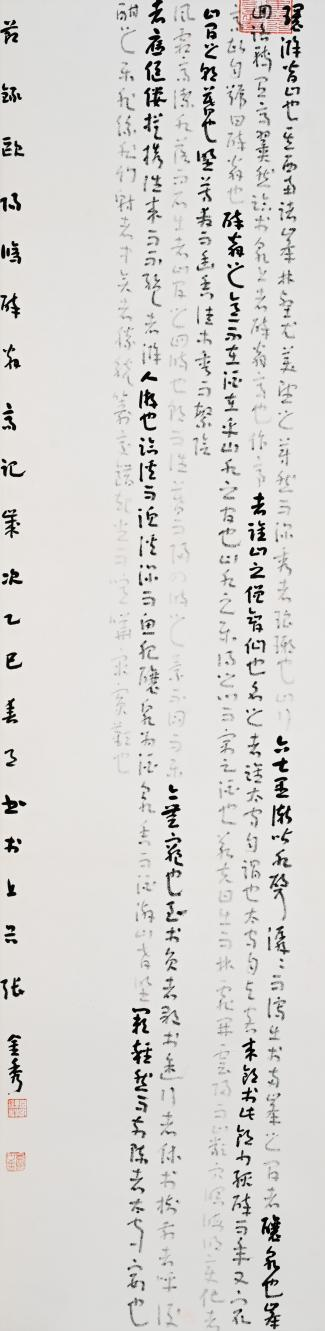 環滁皆山也其西南諸峯林壑尤美望之蔚然而深秀者琅琊也山行六七里漸聞水聲潺々而瀉出於兩峯之間者釀泉也峯
回路轉有亭翼然臨於泉上者醉翁亭也作亭者誰山之僧智仙也名之者誰太守自謂也太守與客來飲於此飲少輒醉而年又最
高故自號曰醉翁也醉翁之意不在酒在乎山水之間也山水之樂得之心而寓之酒也若夫日出而林霏開雲歸而巖穴暝晦明變化者
山間之朝暮也野芳發而幽香佳木秀而繁陰
風霜高潔水落而石出者山間之四時也朝而往暮而歸四時之景不同而樂亦無窮也至於負者歌於途行者休於樹前者呼後
者應傴僂提攜往來而不絕者滁人遊也臨溪而漁溪深而魚肥釀泉為酒泉香而酒洌山肴野蔌雜然而前陳者太守宴也
酣之樂非絲非竹射者中奕者勝觥籌交錯起坐而喧嘩者衆賓歡也
節錄歐陽脩醉翁亭記歲次乙巳春月書於上谷張金秀